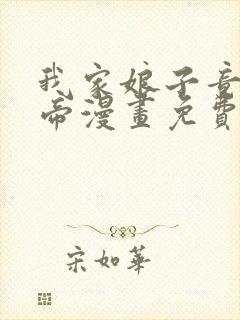 我家娘子竟
帝漫畫免費
宋如華